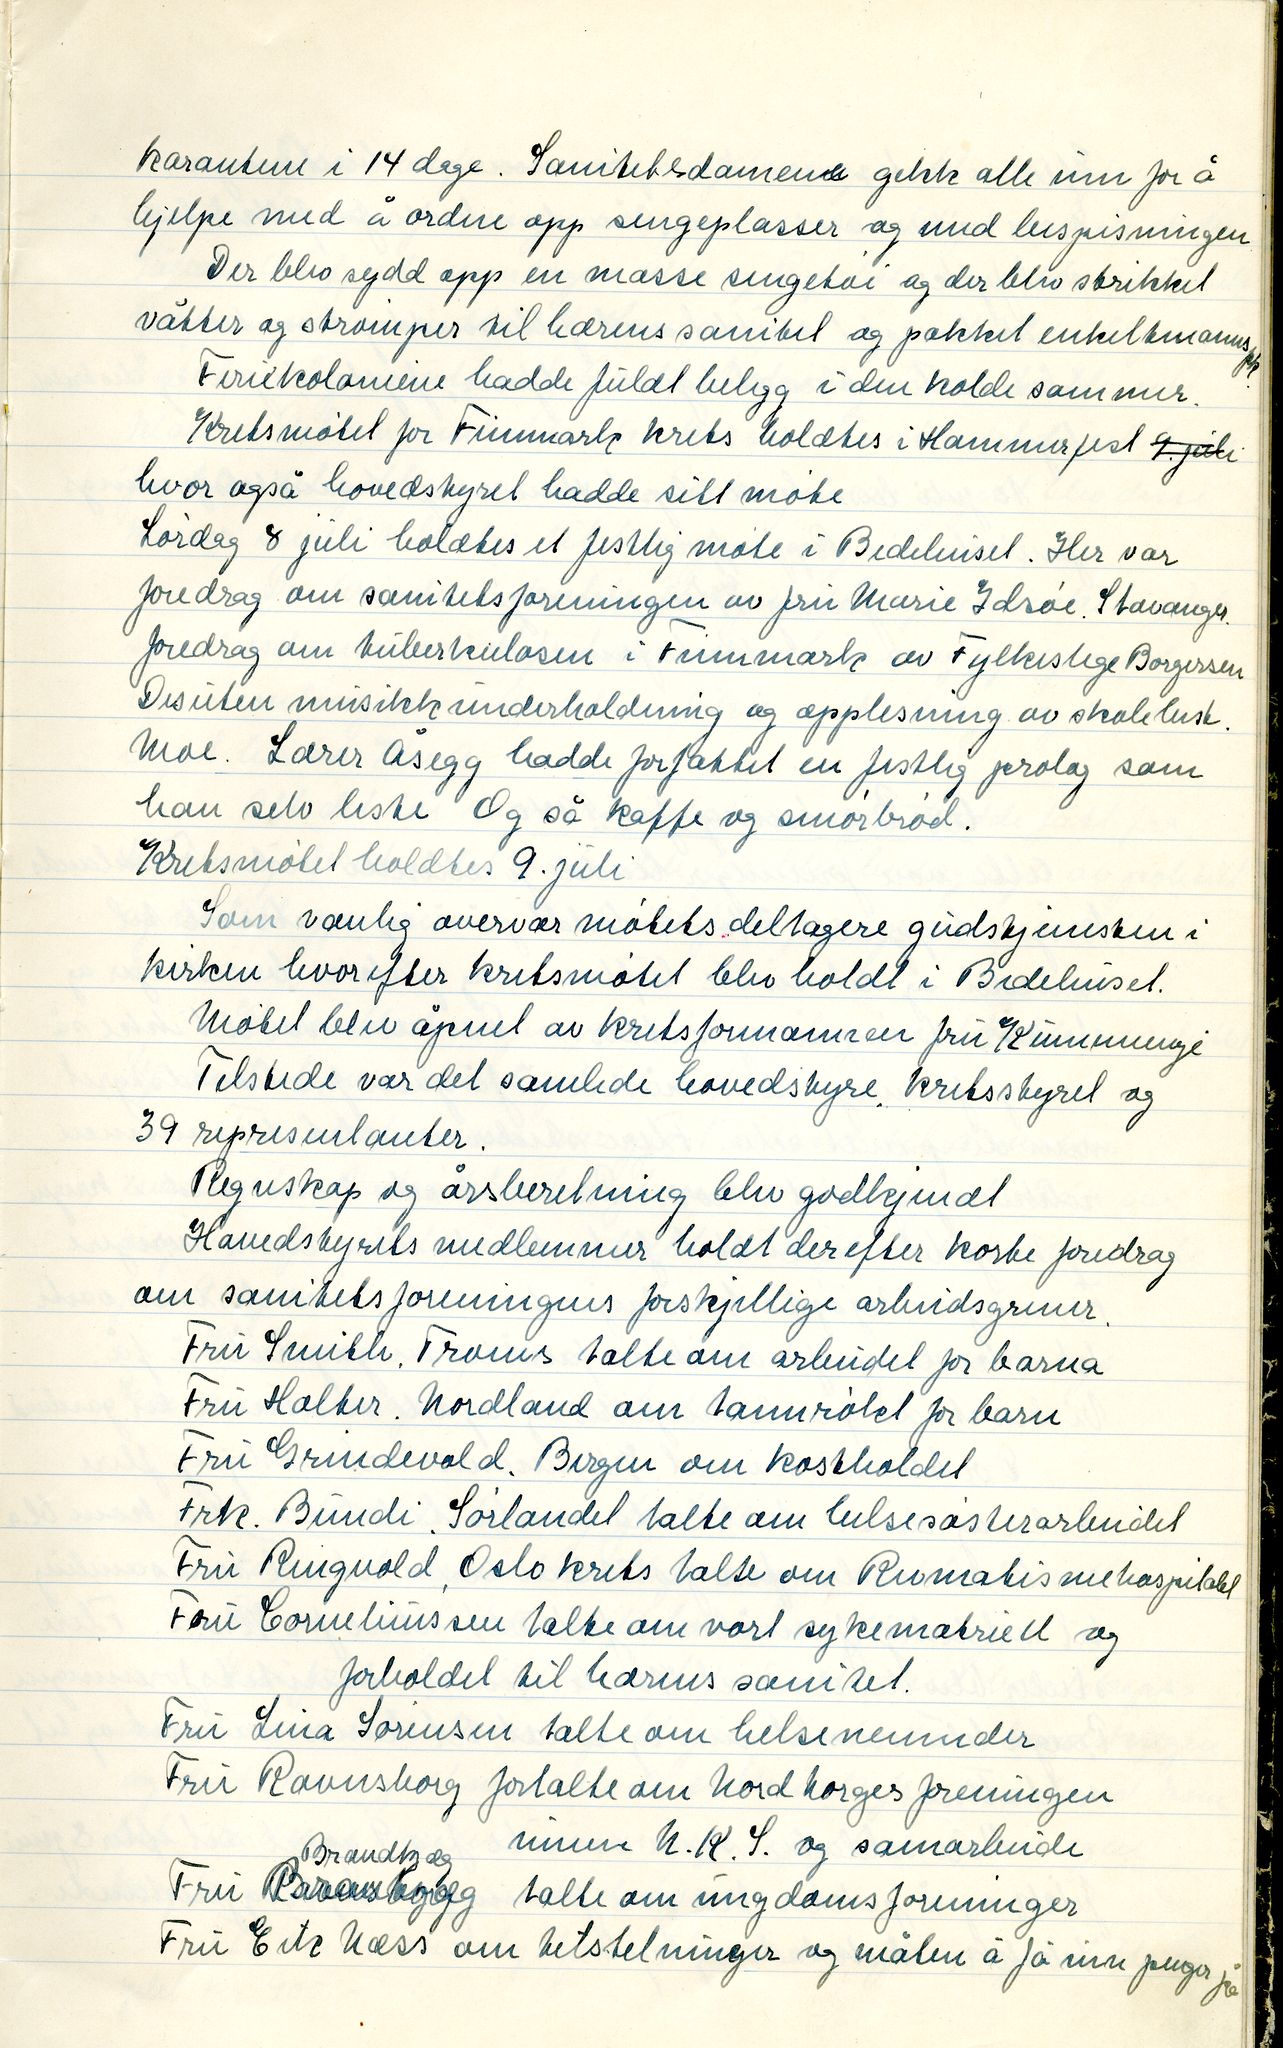 karantene i 14 dage. Sanitetsdamene gikk alle inn for å
hjelpe med å ordne opp sengeplasser og med bespisningen
Der blev sydd opp en masse sengetöi og der blev strikket
våtter og strömper til hærens sanitet og pakket enkeltmannspk.
Feriekoloniene hadde fuldt belegg i den kolde sommer.
Kretsmötet for Finnmark krets holdtes i Hammerfest 9. juli
hvor også hovedstyret hadde sitt möte
Lördag 8 juli holdtes et festlig möte i Bedehuset. Her var
foredrag om sanitetsforeningen av fru Marie Idsöe. Stavanger.
foredrag om tuberkulosen i Finnmark av Fylkeslege Borgersen
Desuten musikkunderholdning og opplesning av skolebest.
Moe. Lærer Åsegg hadde forfattet en festlig prolog som
han selv leste Og så kaffe og smörbröd.
Kretsmötet holdtes 9. juli
Som vanlig overvar mötets deltagere gudstjenesten i
kirken hvorefter kretsmötet blev holdt i Bedehuset.
Mötet blev åpnet av kretsformannen fru Kummenje
Tilstede var det samlede hovedstyre, kretsstyret og
39 representanter.
Regnskap og årsberetning blev godkjendt
Hovedstyrets medlemmer holdt derefter korte foredrag
om sanitetsforeningens forskjellige arbeidsgrener.
Fru Smith, Troms talte om arbeidet for barna
Fru Holter. Nordland om tannrökt for barn
Fru Grindevold. Bergen om kostholdet
Frk. Bundi, Sörlandet talte om helsesösterarbeidet
Fru Ringvold, Oslo krets talte om Revmatismehospitalet
Fru Corneliussen talte om vort sykematriell og
forholdet til hærens sanitet.
Fru Lina Sörensen talte om helsenemnder
Fru Ravnsborg fortalte om Nord Norges foreningen
innen N.K.S. og samarbeide
Brandkæg
Fru talte om ungdomsforeninger
Fru Eitz Næss om tilstelninger og måten å få inn penger på